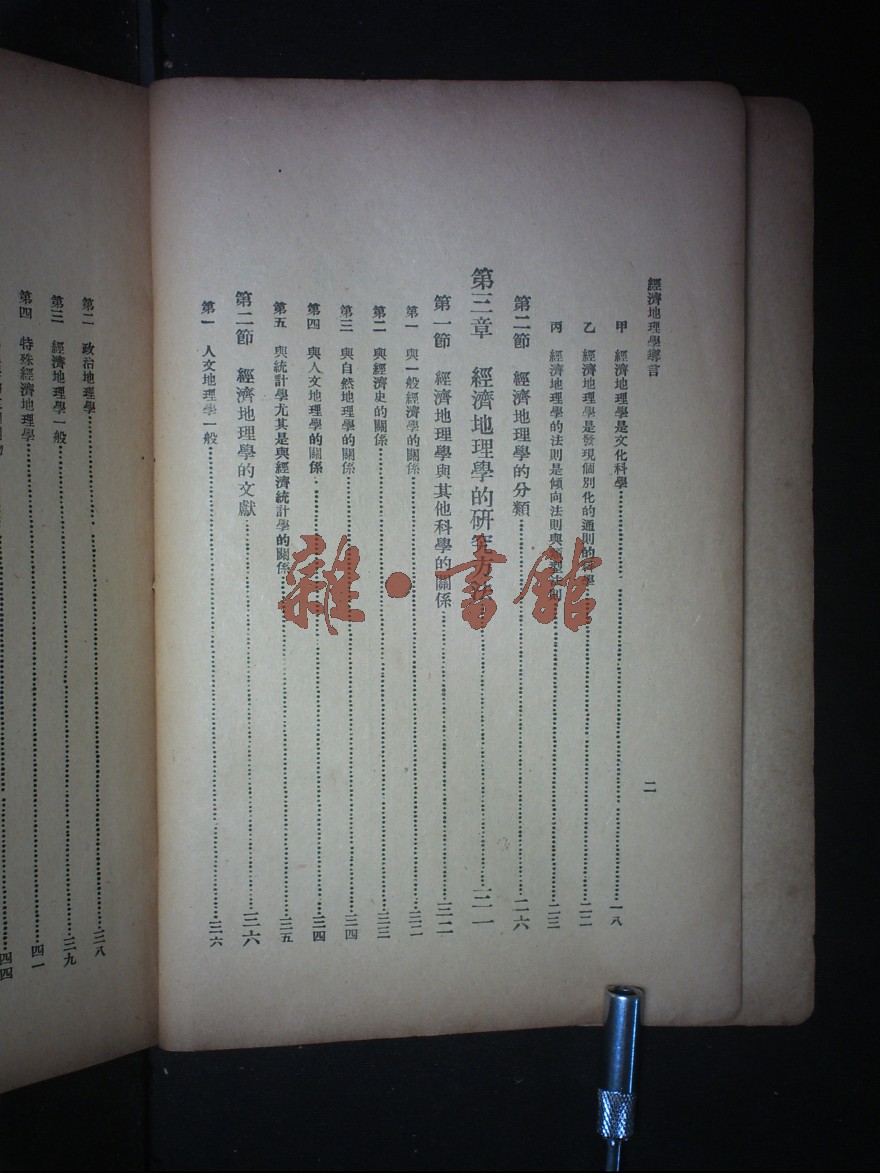 經濟地理學導言
二
甲 經濟地理學是文化科學……一八
乙 經濟地理學是發現個別化的通則的科學……二二
丙 經濟地理學的法則是傾向法則與類型法則……二三
第二節 經濟地理學的分類……二六
第三章 經濟地理學的研究方法……三一
第一節 經濟地理學與其他科學的關係……三二
第一 與一般經濟學的關係……三二
第二 與經濟史的關係……三三
第三 與自然地理學的關係……三四
第四 與人文地理學的關係……三四
第五 與統計學尤其是與經濟統計學的關係……三五
第二節 經濟地理學的文獻……三六
第一 人文地理學一般……三六
第二 政治地理學……三八
第三 經濟地理學一般……三九
第四 特殊經濟地理學……四一
四四
雜·書館